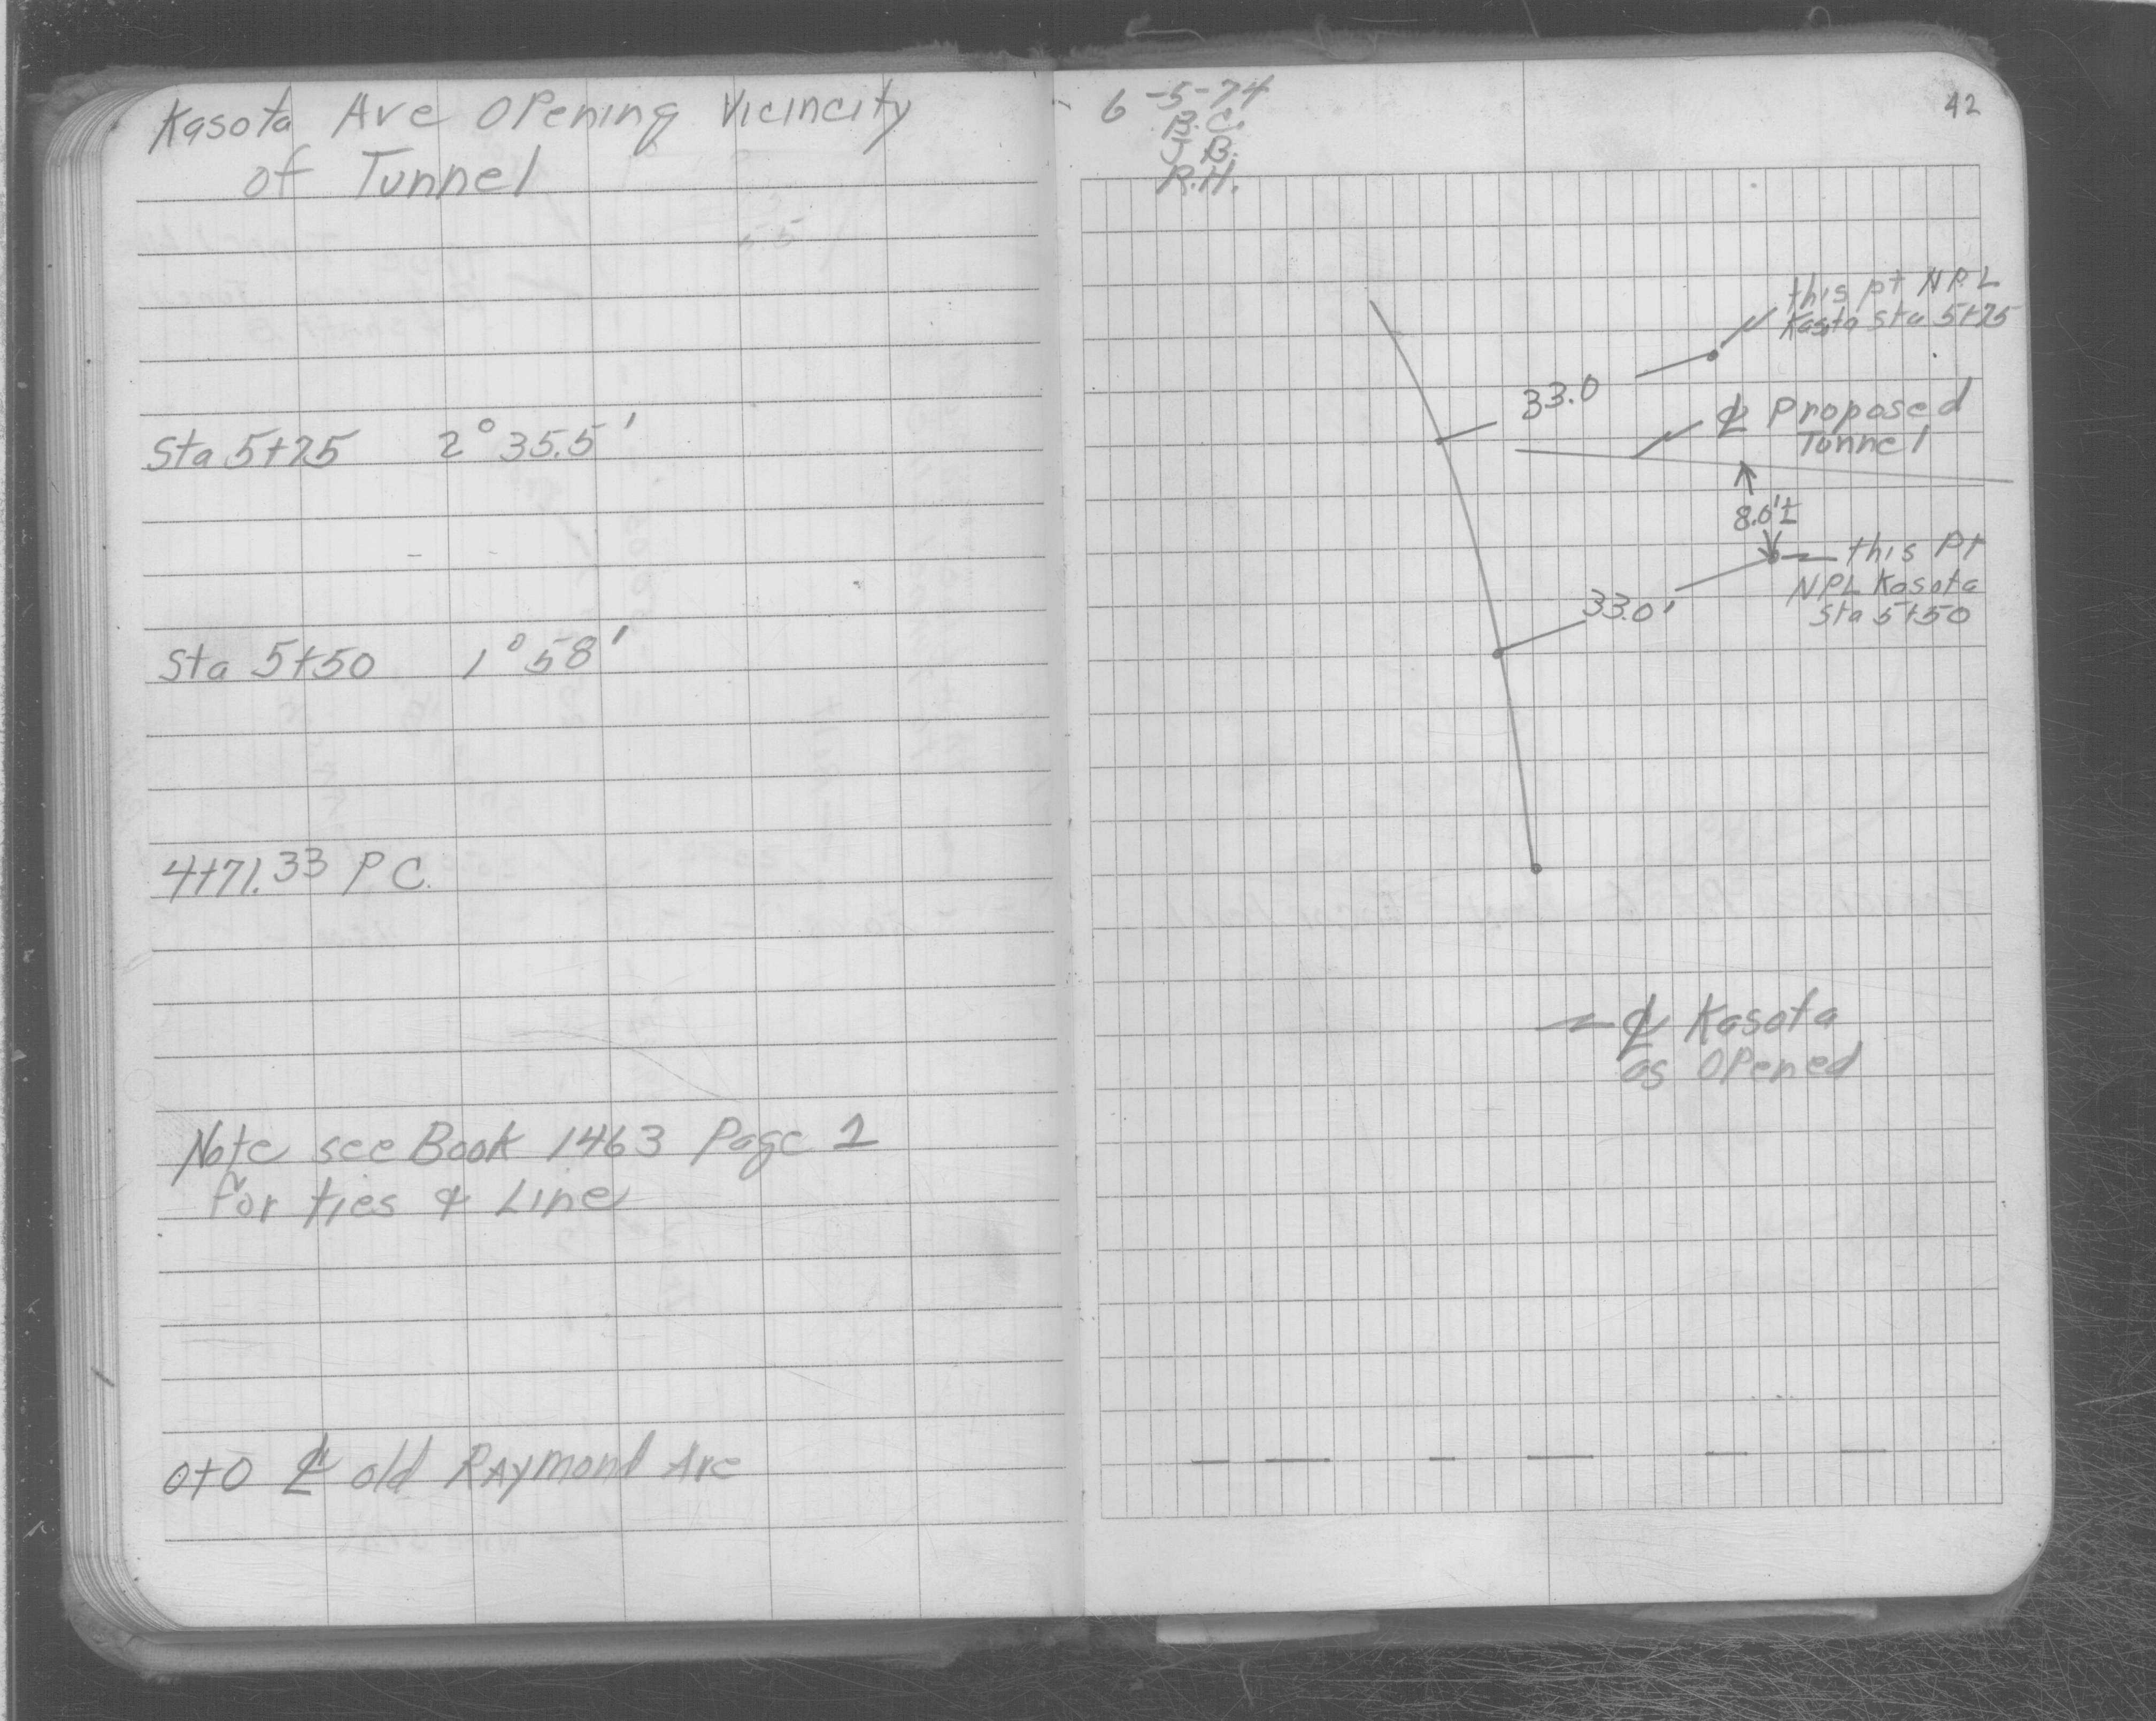 Kasota Ave Opening Vicincity
of Tunnel
Sta 5+75 2° 35.5'
Sta 5+50 1° 58'
4+71.33 P C.
Note see Book 1463 Page 1
for ties & Line
0+0 ℄ old Raymond Ave
6-5-74
B.C.
J B.
R.H.
42
this pt NPL
Kasota Sta 5+75
33.0
℄ Proposed
Tunnel
8.0'±
this Pt
NPL Kasota
Sta 5+50
33.0'
℄ Kasota
as Opened